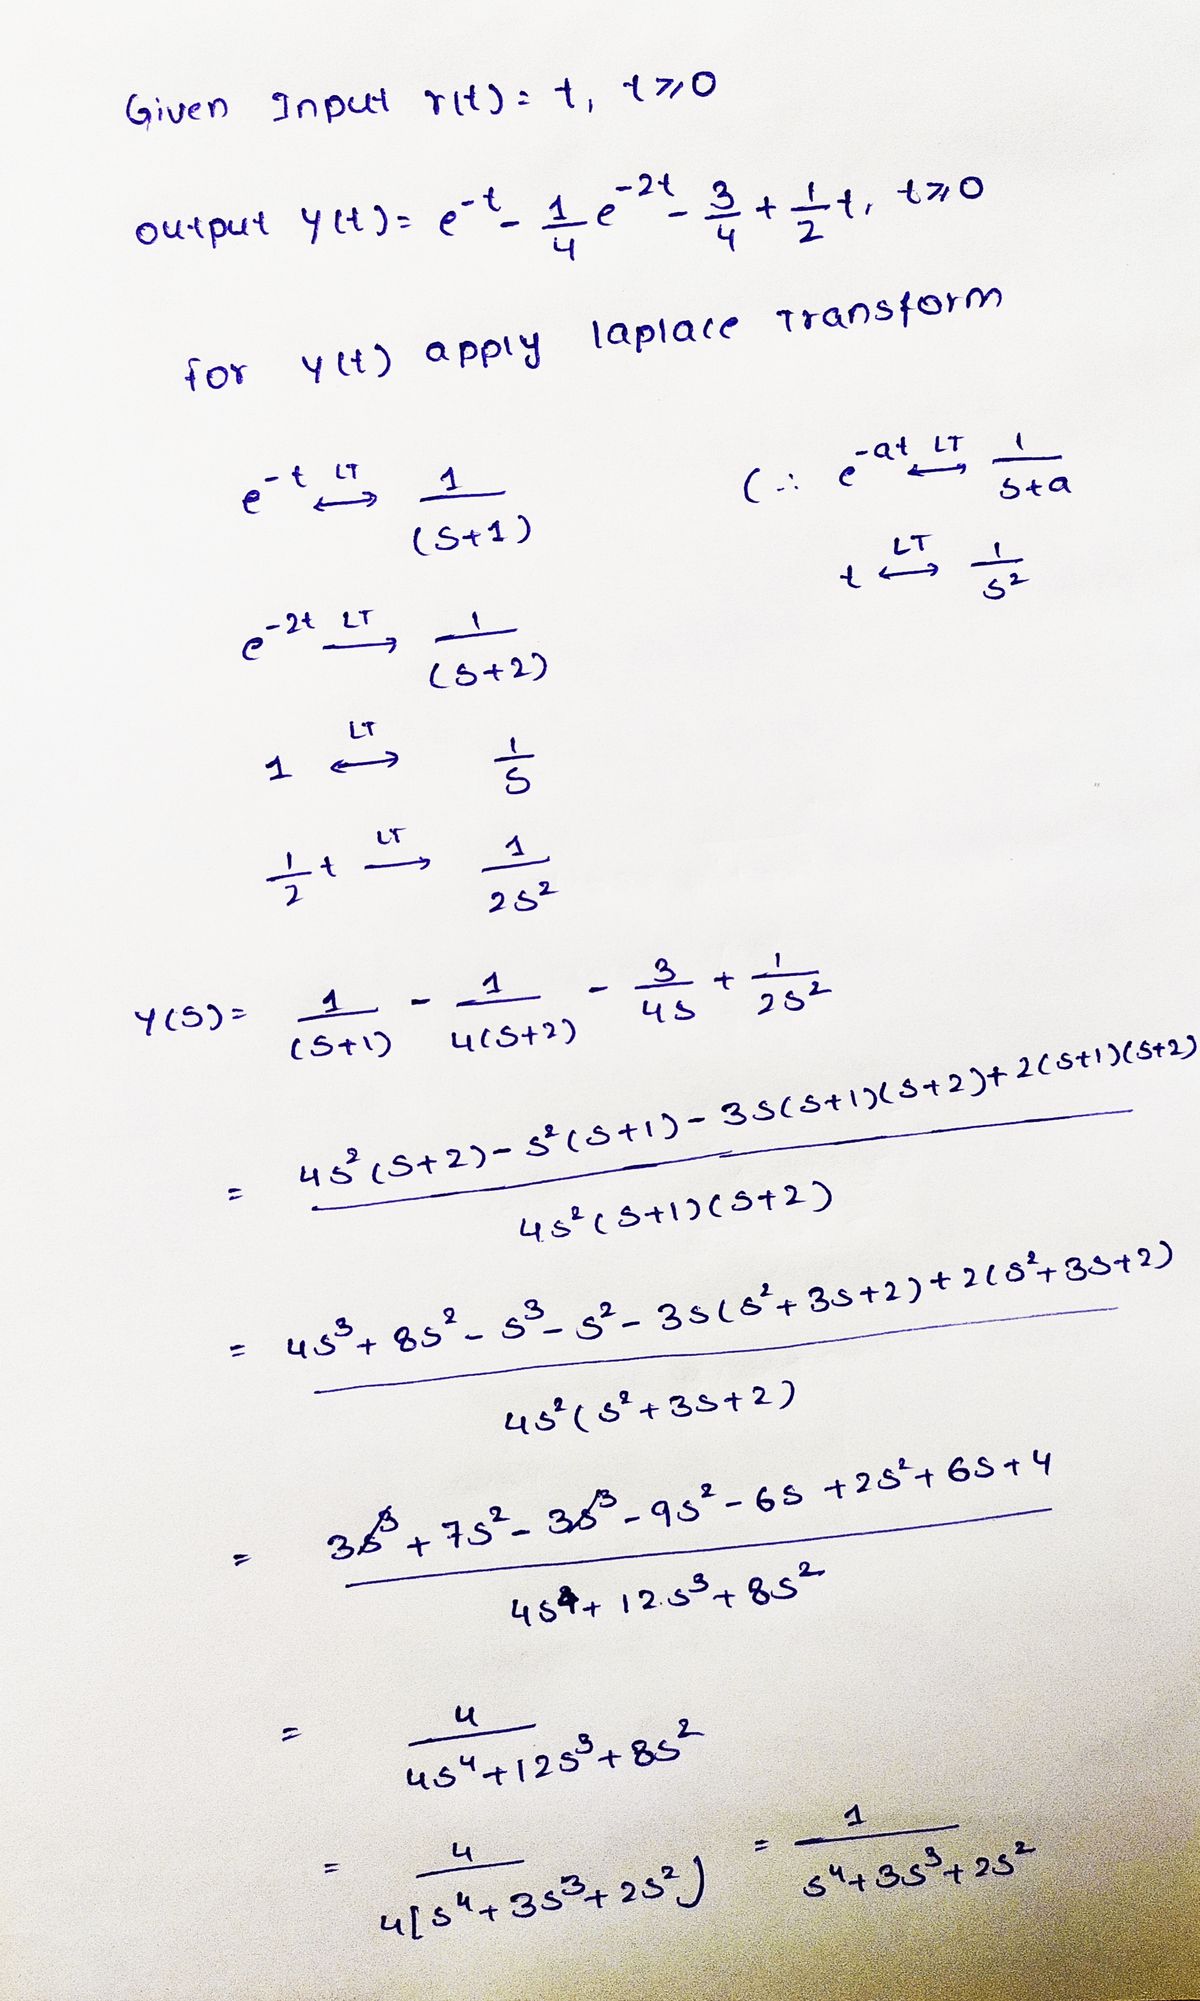 Given Input r(t) = t, t ≥ 0
output y(t) = e^-t - 1/4 e^-2t - 3/4 + 1/2 t, t ≥ 0
for y(t) apply laplace Transform
e^-t <-LT-> 1/(S+1) (∴ e^-at <-LT-> 1/(S+a)
t <-LT-> 1/s^2
e^-2t -LT-> 1/(S+2)
1 <-LT-> 1/S
1/2 t -LT-> 1/2s^2
Y(S) = 1/(S+1) - 1/4(S+2) - 3/4s + 1/2s^2
= (4s^2(S+2) - s^2(S+1) - 3s(s+1)(s+2) + 2(s+1)(s+2)) / 4s^2(s+1)(s+2)
= (4s^3 + 8s^2 - s^3 - s^2 - 3s(s^2+3s+2) + 2(s^2+3s+2)) / 4s^2(s^2+3s+2)
= (3s^3 + 7s^2 - 3s^3 - 9s^2 - 6s + 2s^2 + 6s + 4) / (4s^4 + 12s^3 + 8s^2)
= 4/(4s^4 + 12s^3 + 8s^2)
= 4/4[s^4 + 3s^3 + 2s^2) = 1/(s^4 + 3s^3 + 2s^2)